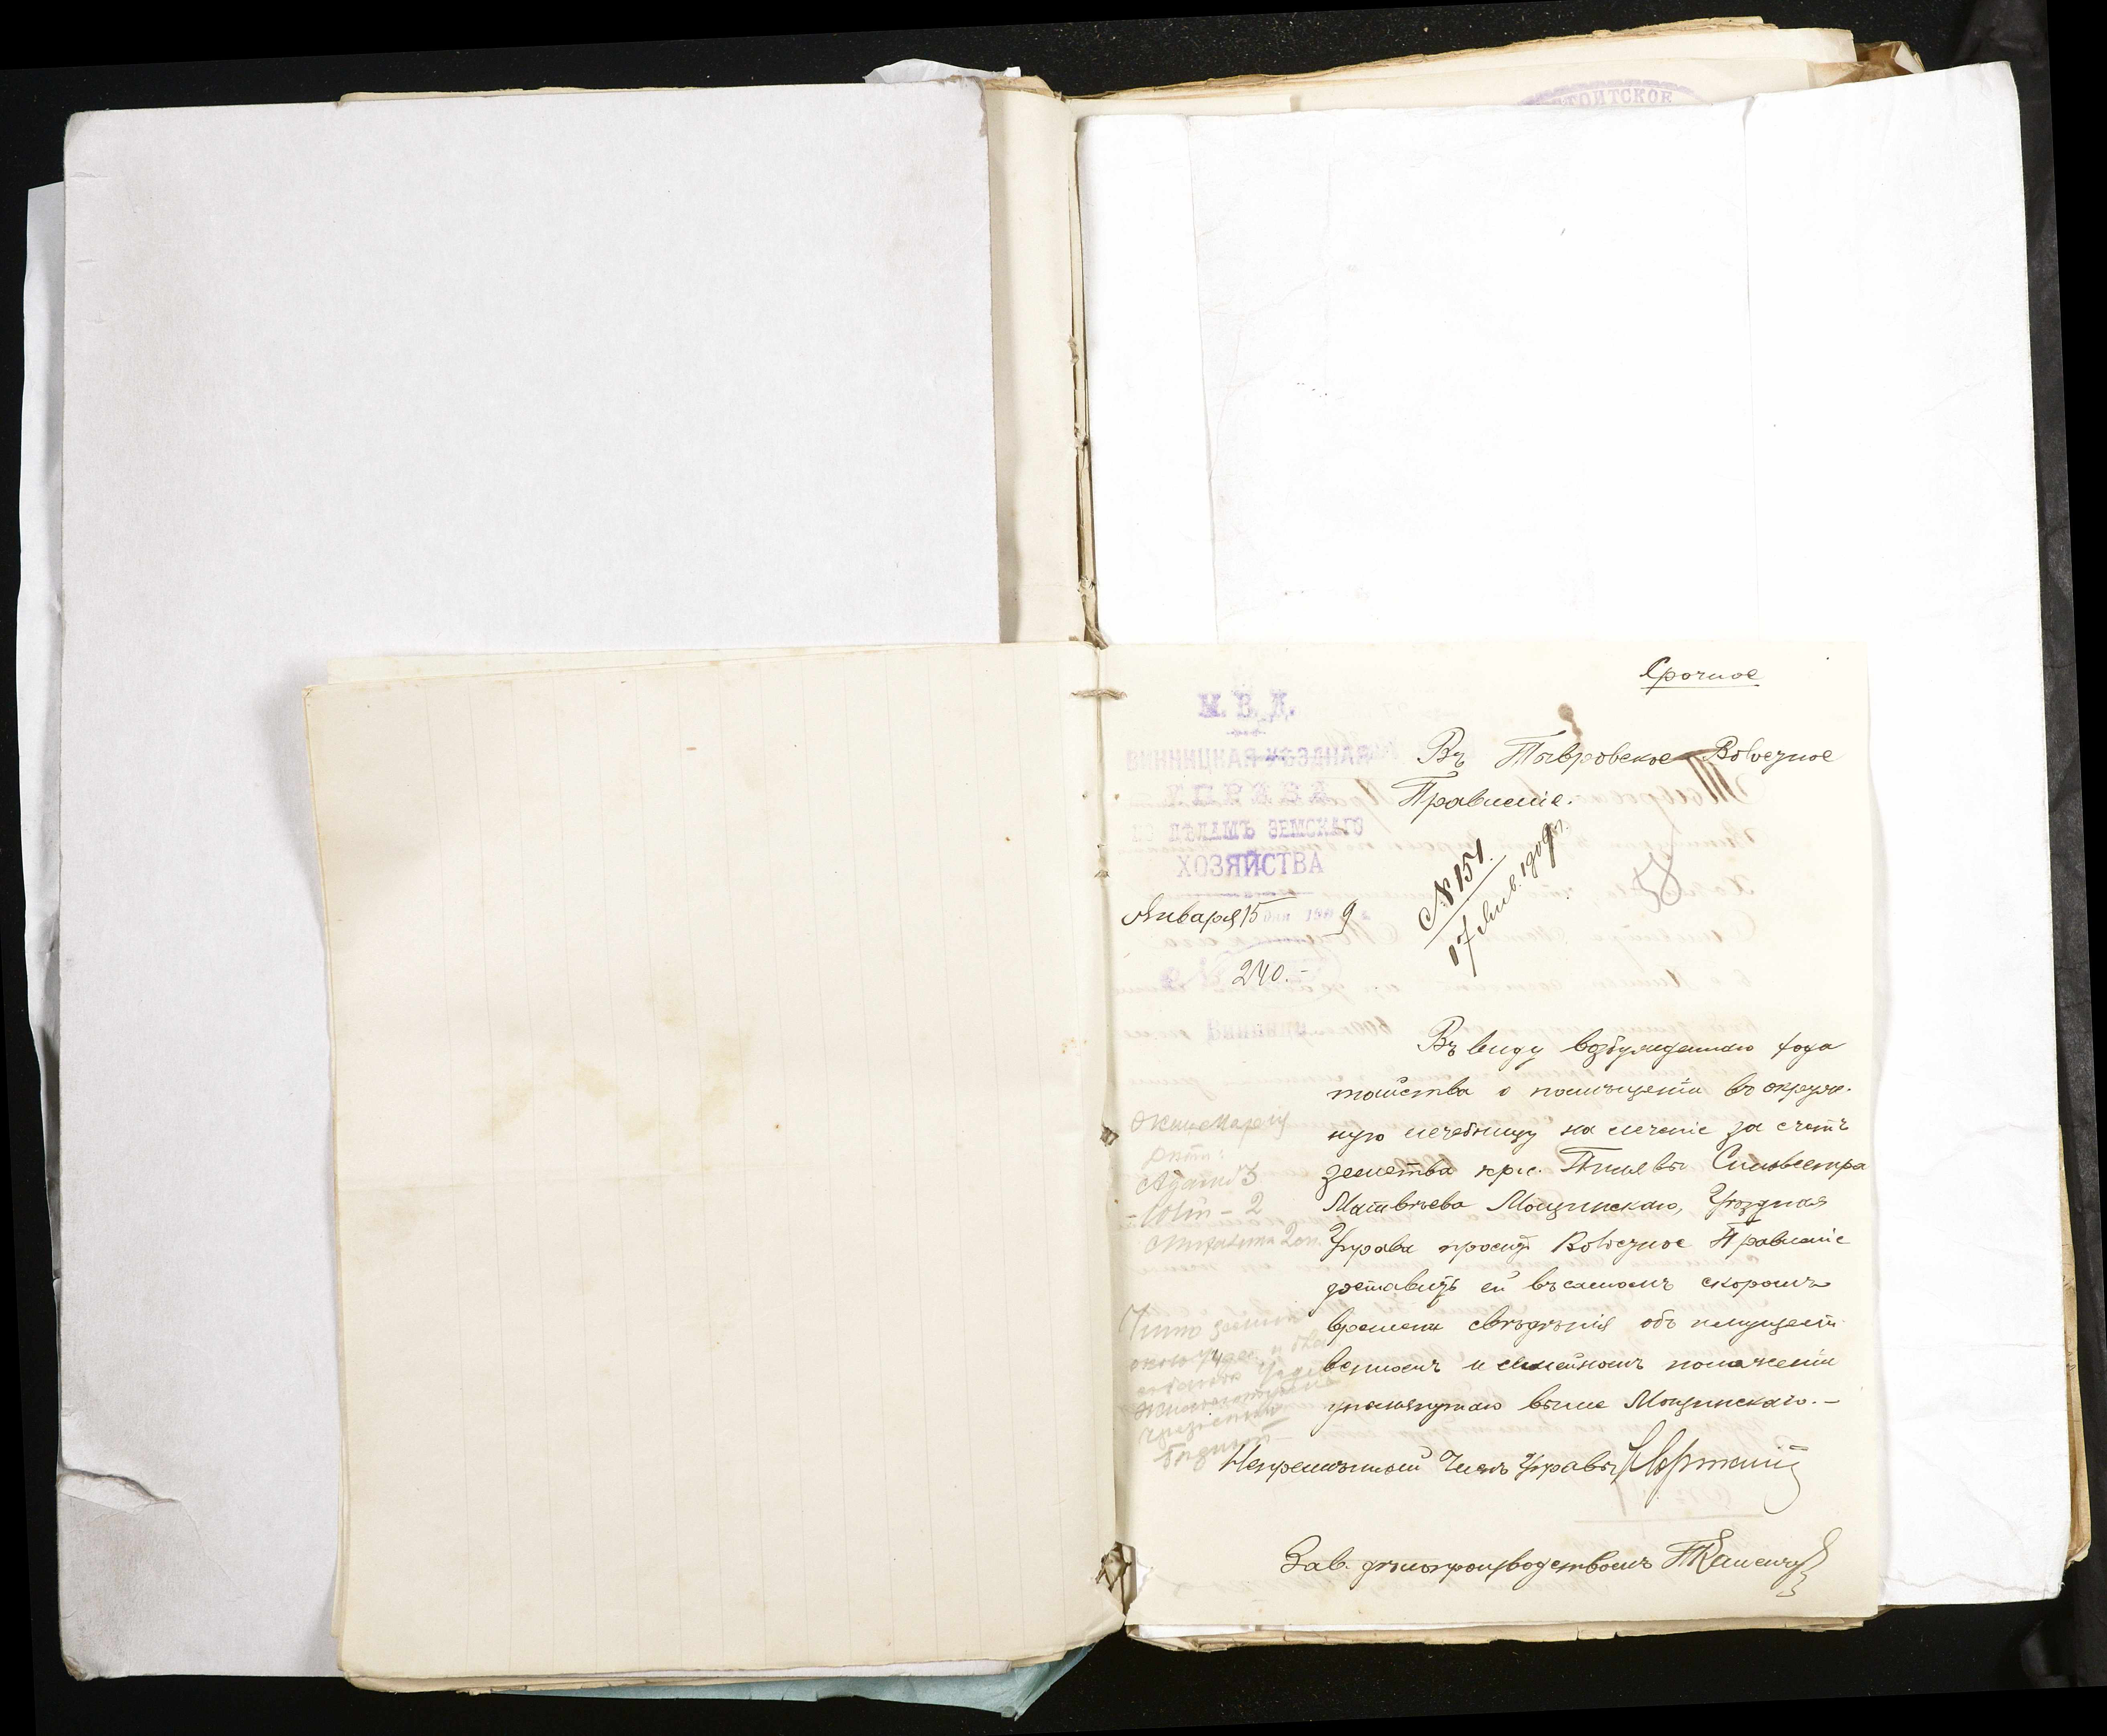 Срочное
М. В. Д.
ВИННИЦКАЯ УѢЗДНАЯ
УПРАВА
ПО ДѢЛАМЪ ЗЕМСКАГО
ХОЗЯЙСТВА
Января 15 дня 1909 г.
№ 240.-
Винница
Въ Тывровское Волостное
Правленіе.
№ 151.
17 Янв. 1909 г.
58
Въ виду возбужденнаго хода
тайства о помѣщеніи въ окруж-
ную лечебницу на леченіе за счетъ
земства кре. Пилявы Сильвестра
Матвѣева Мощинскаго, Уѣздная
Управа проситъ Волостное Правленіе
доставить ей въ самомъ скоромъ
времени свѣдѣнія объ имуществ
венномъ и семейномъ положеніи
упомянутаго выше Мощинскаго.-
Непремѣнный Членъ Управы
Зав. дѣлопроизводствомъ
Марія
дѣти:
Адамъ 3
- 2
земли
около